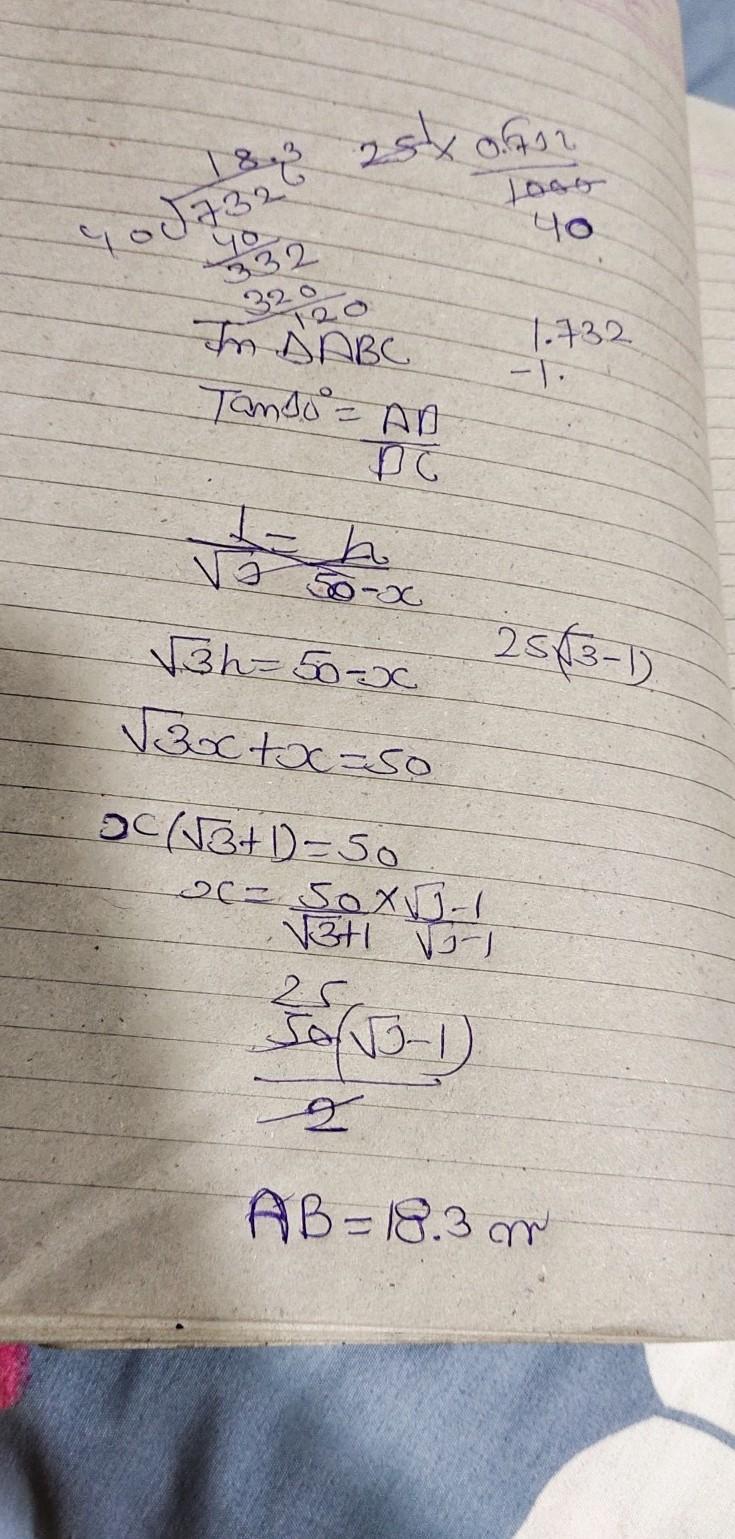 18.3
25 1 × 0.732
40 √732
1000
40
40
332
320
120
In ΔABC
1.732
-1.
Tan30° = AB
BC
1 = h
√3 50-x
√3h = 50-x
25(√3-1)
√3x+x=50
x(√3+1)=50
x = 50 × √3-1
√3+1 √3-1
25
50(√3-1)
2
AB = 18.3 m